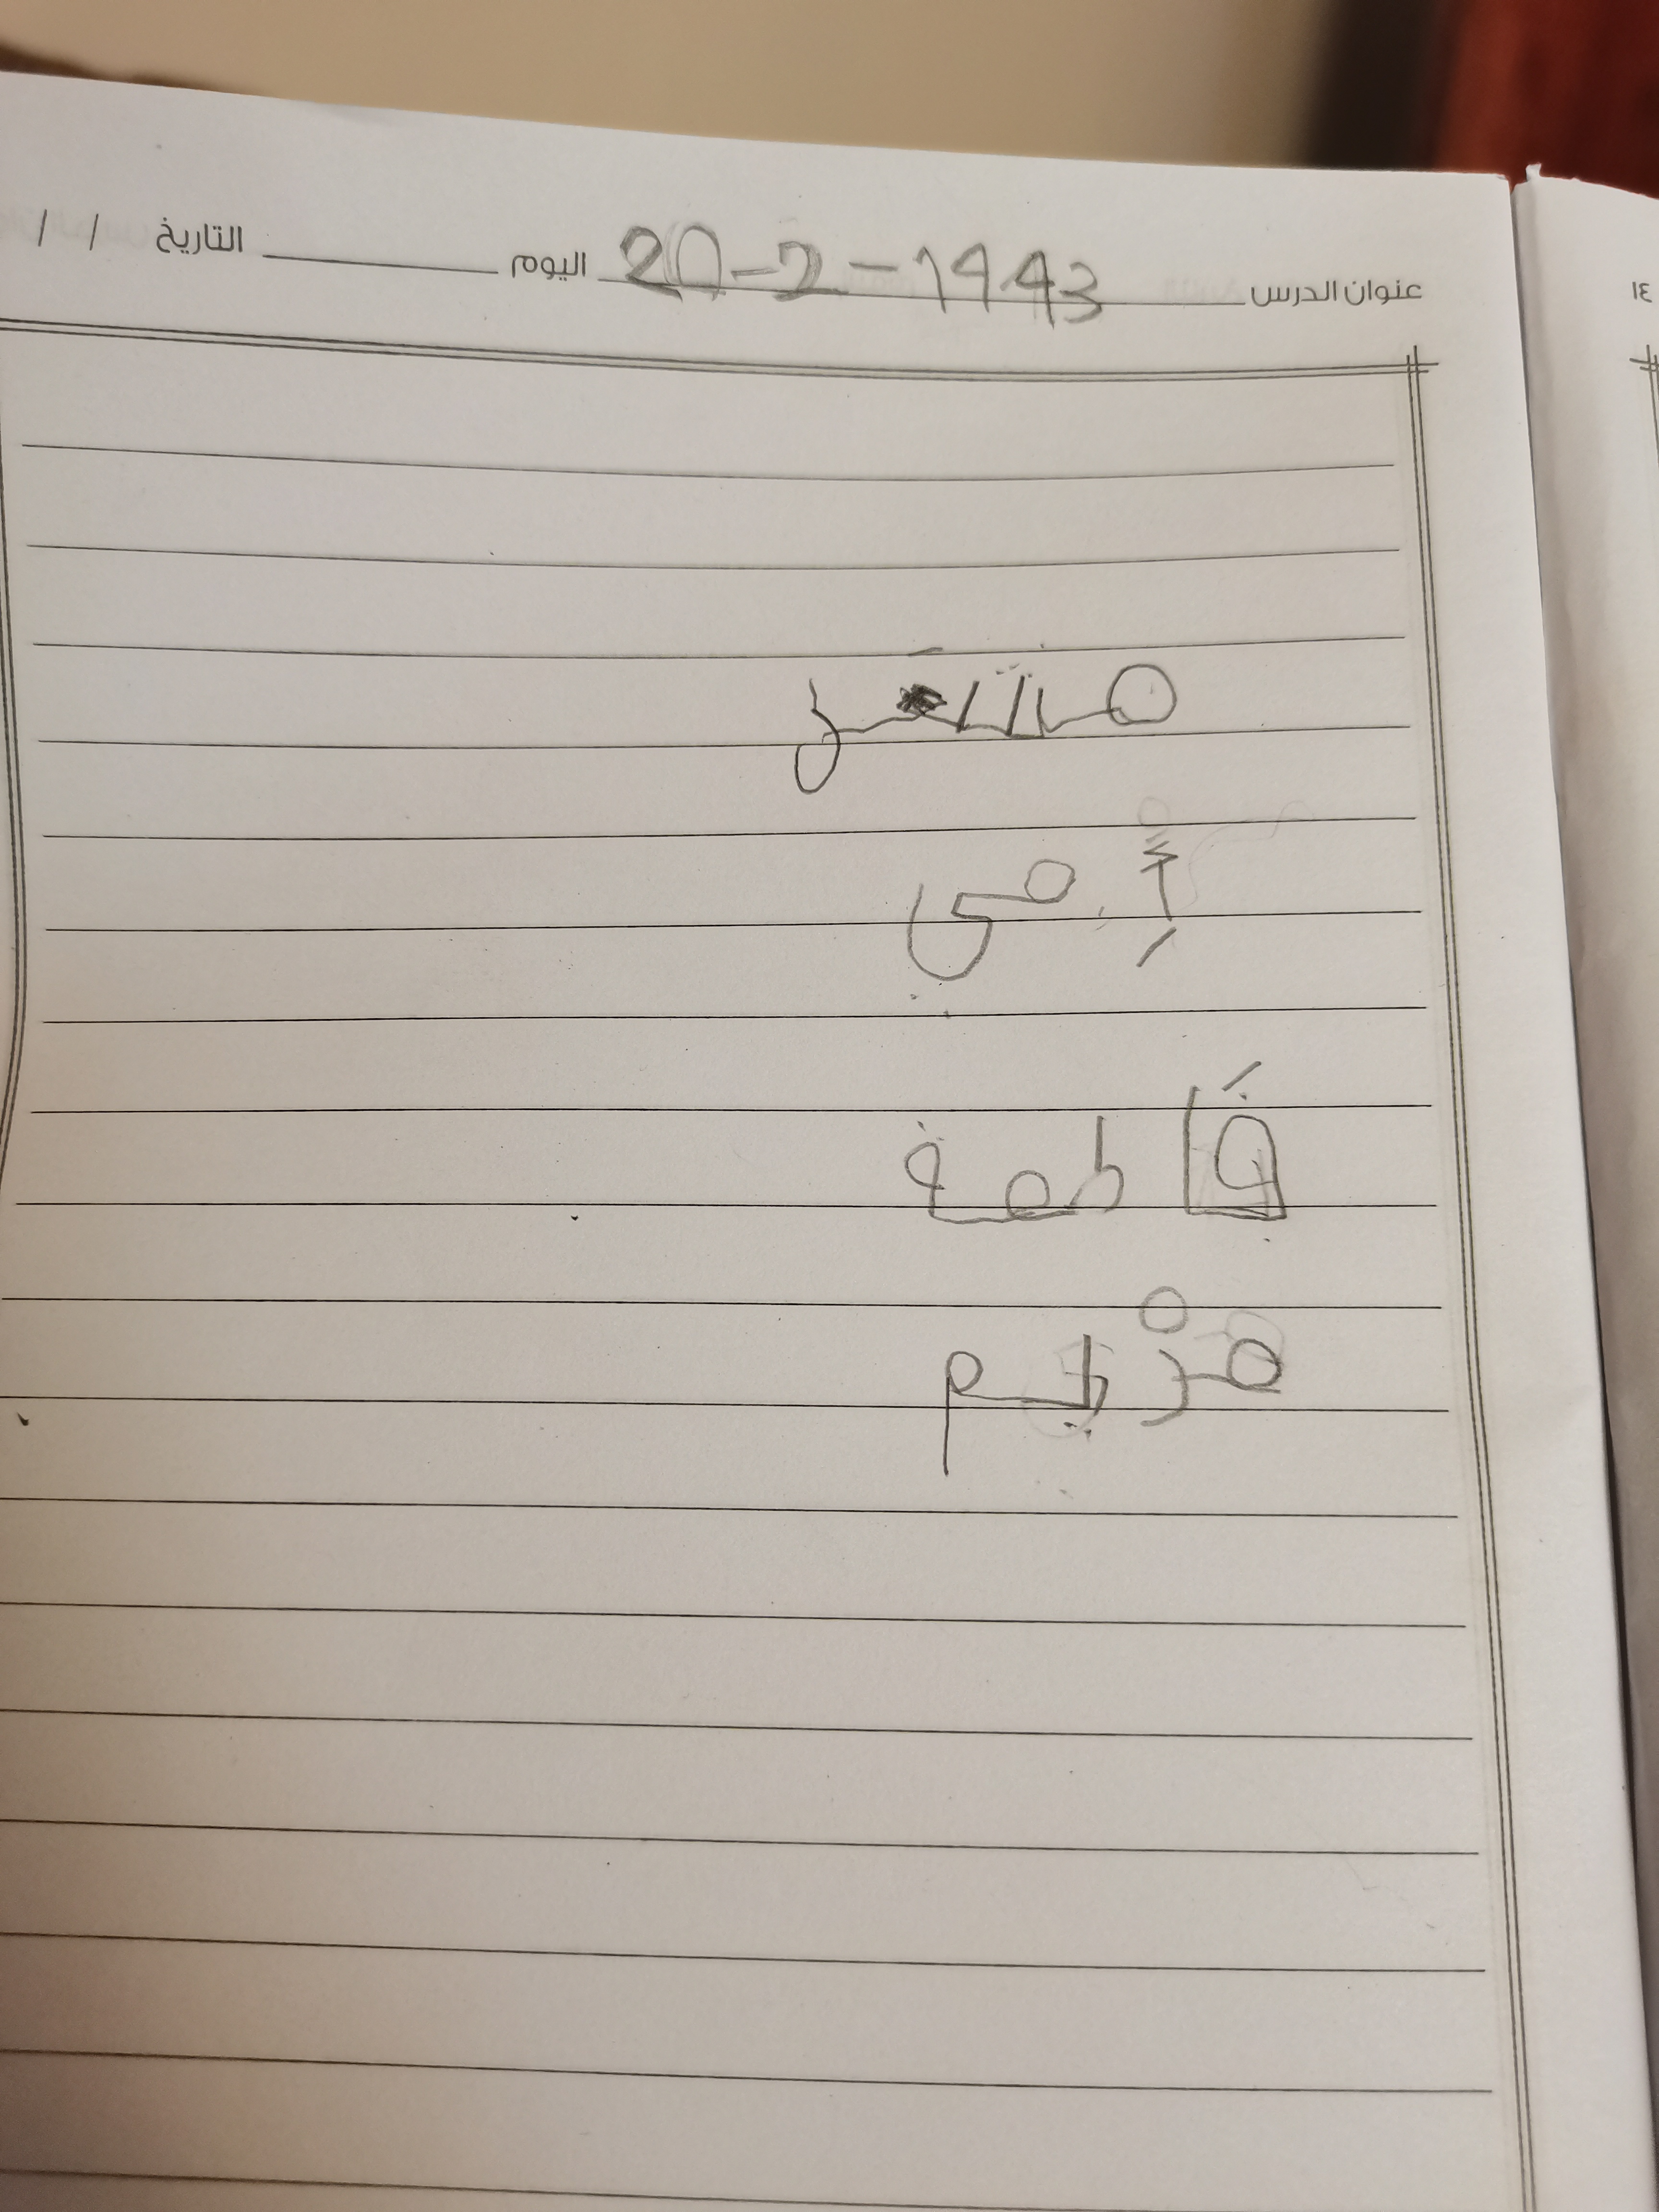 ١٤
عنوان الدرس 20-2-1443 اليوم التاريخ / /
أمي
فَاطمة
مرْيم